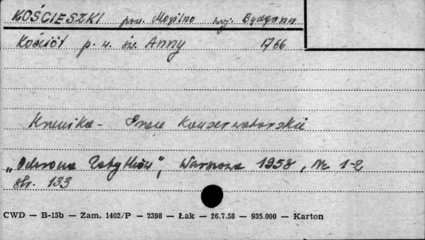 KOŚCIESZKI pow. Mogilno woj. Bydgoszcz
Kościół p. w. św. Anny 1766
Kronika - Prace Konserwatorskie
„Ochrona Zabytków", Warszawa 1958, Nr 1-2
str. 133
CWD — B-15b — Zam. 1402/P — 2398 — Łak — 26.7.58 — 935.000 — Karton